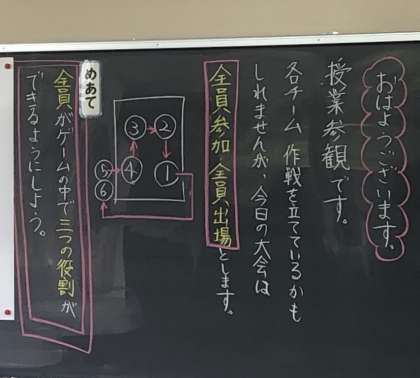 おはようございます。
授業参観です。
各チーム作戦を立てているかも
しれませんが、今日の大会は
全員参加・全員出場とします。
③ ②
⑤ ④ ①
⑥
めあて
全員がゲームの中で三つの役割が
できるようにしよう。